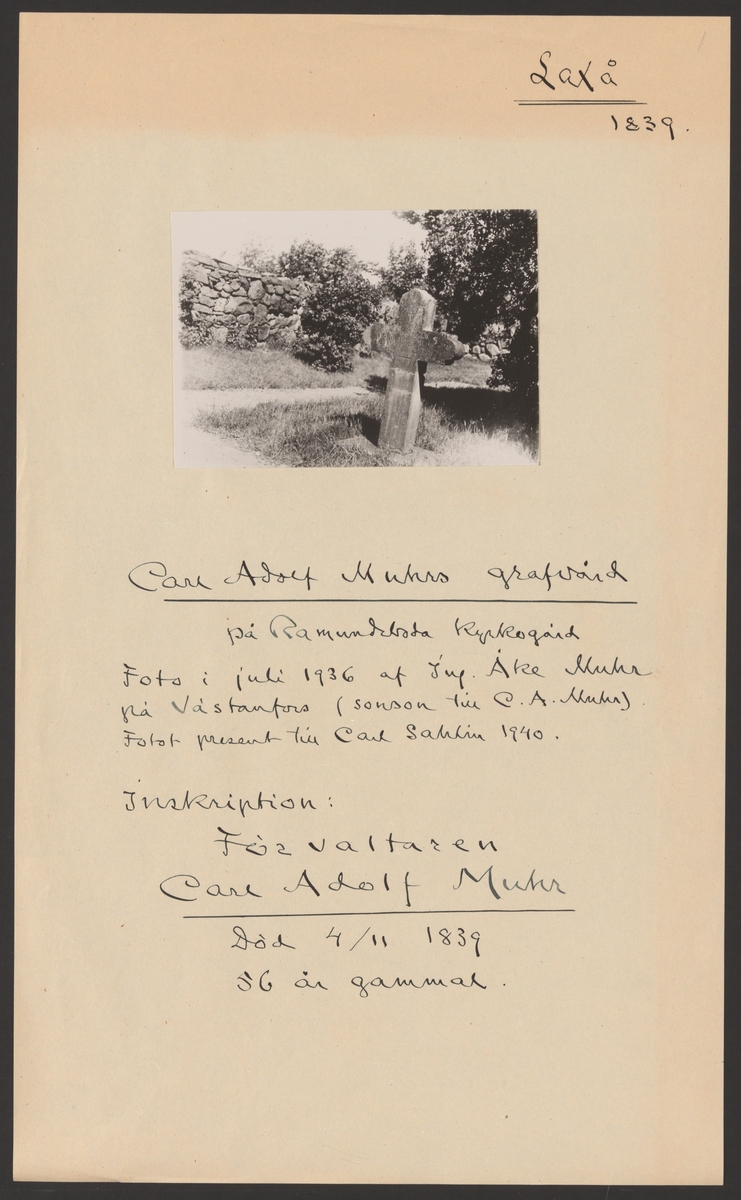 Laxå
1839.
Carl Adolf Muhrs grafvård
på Ramundeboda kyrkogård
Foto i juli 1936 af Ing. Åke Muhr
på Västanfors (sonson till C. A. Muhr).
Fotot present till Carl Sahlin 1940.
Inskription:
Förvaltaren
Carl Adolf Muhr
Död 4/11 1839
56 år gammal.